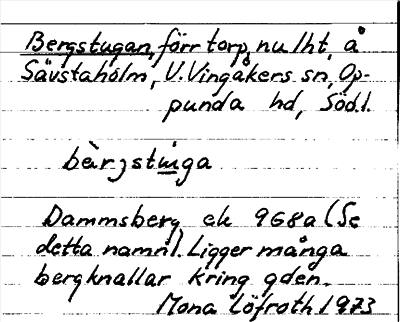 Bergstugan, förr torp, nu lht, å
Sävstaholm, V. Vingåkers sn, Op-
punda hd, Södl.
bàrjstuga
Dammsberg, ek 968a (Se
detta namn). Ligger många
bergknallar kring gden.
Mona Löfroth 1973